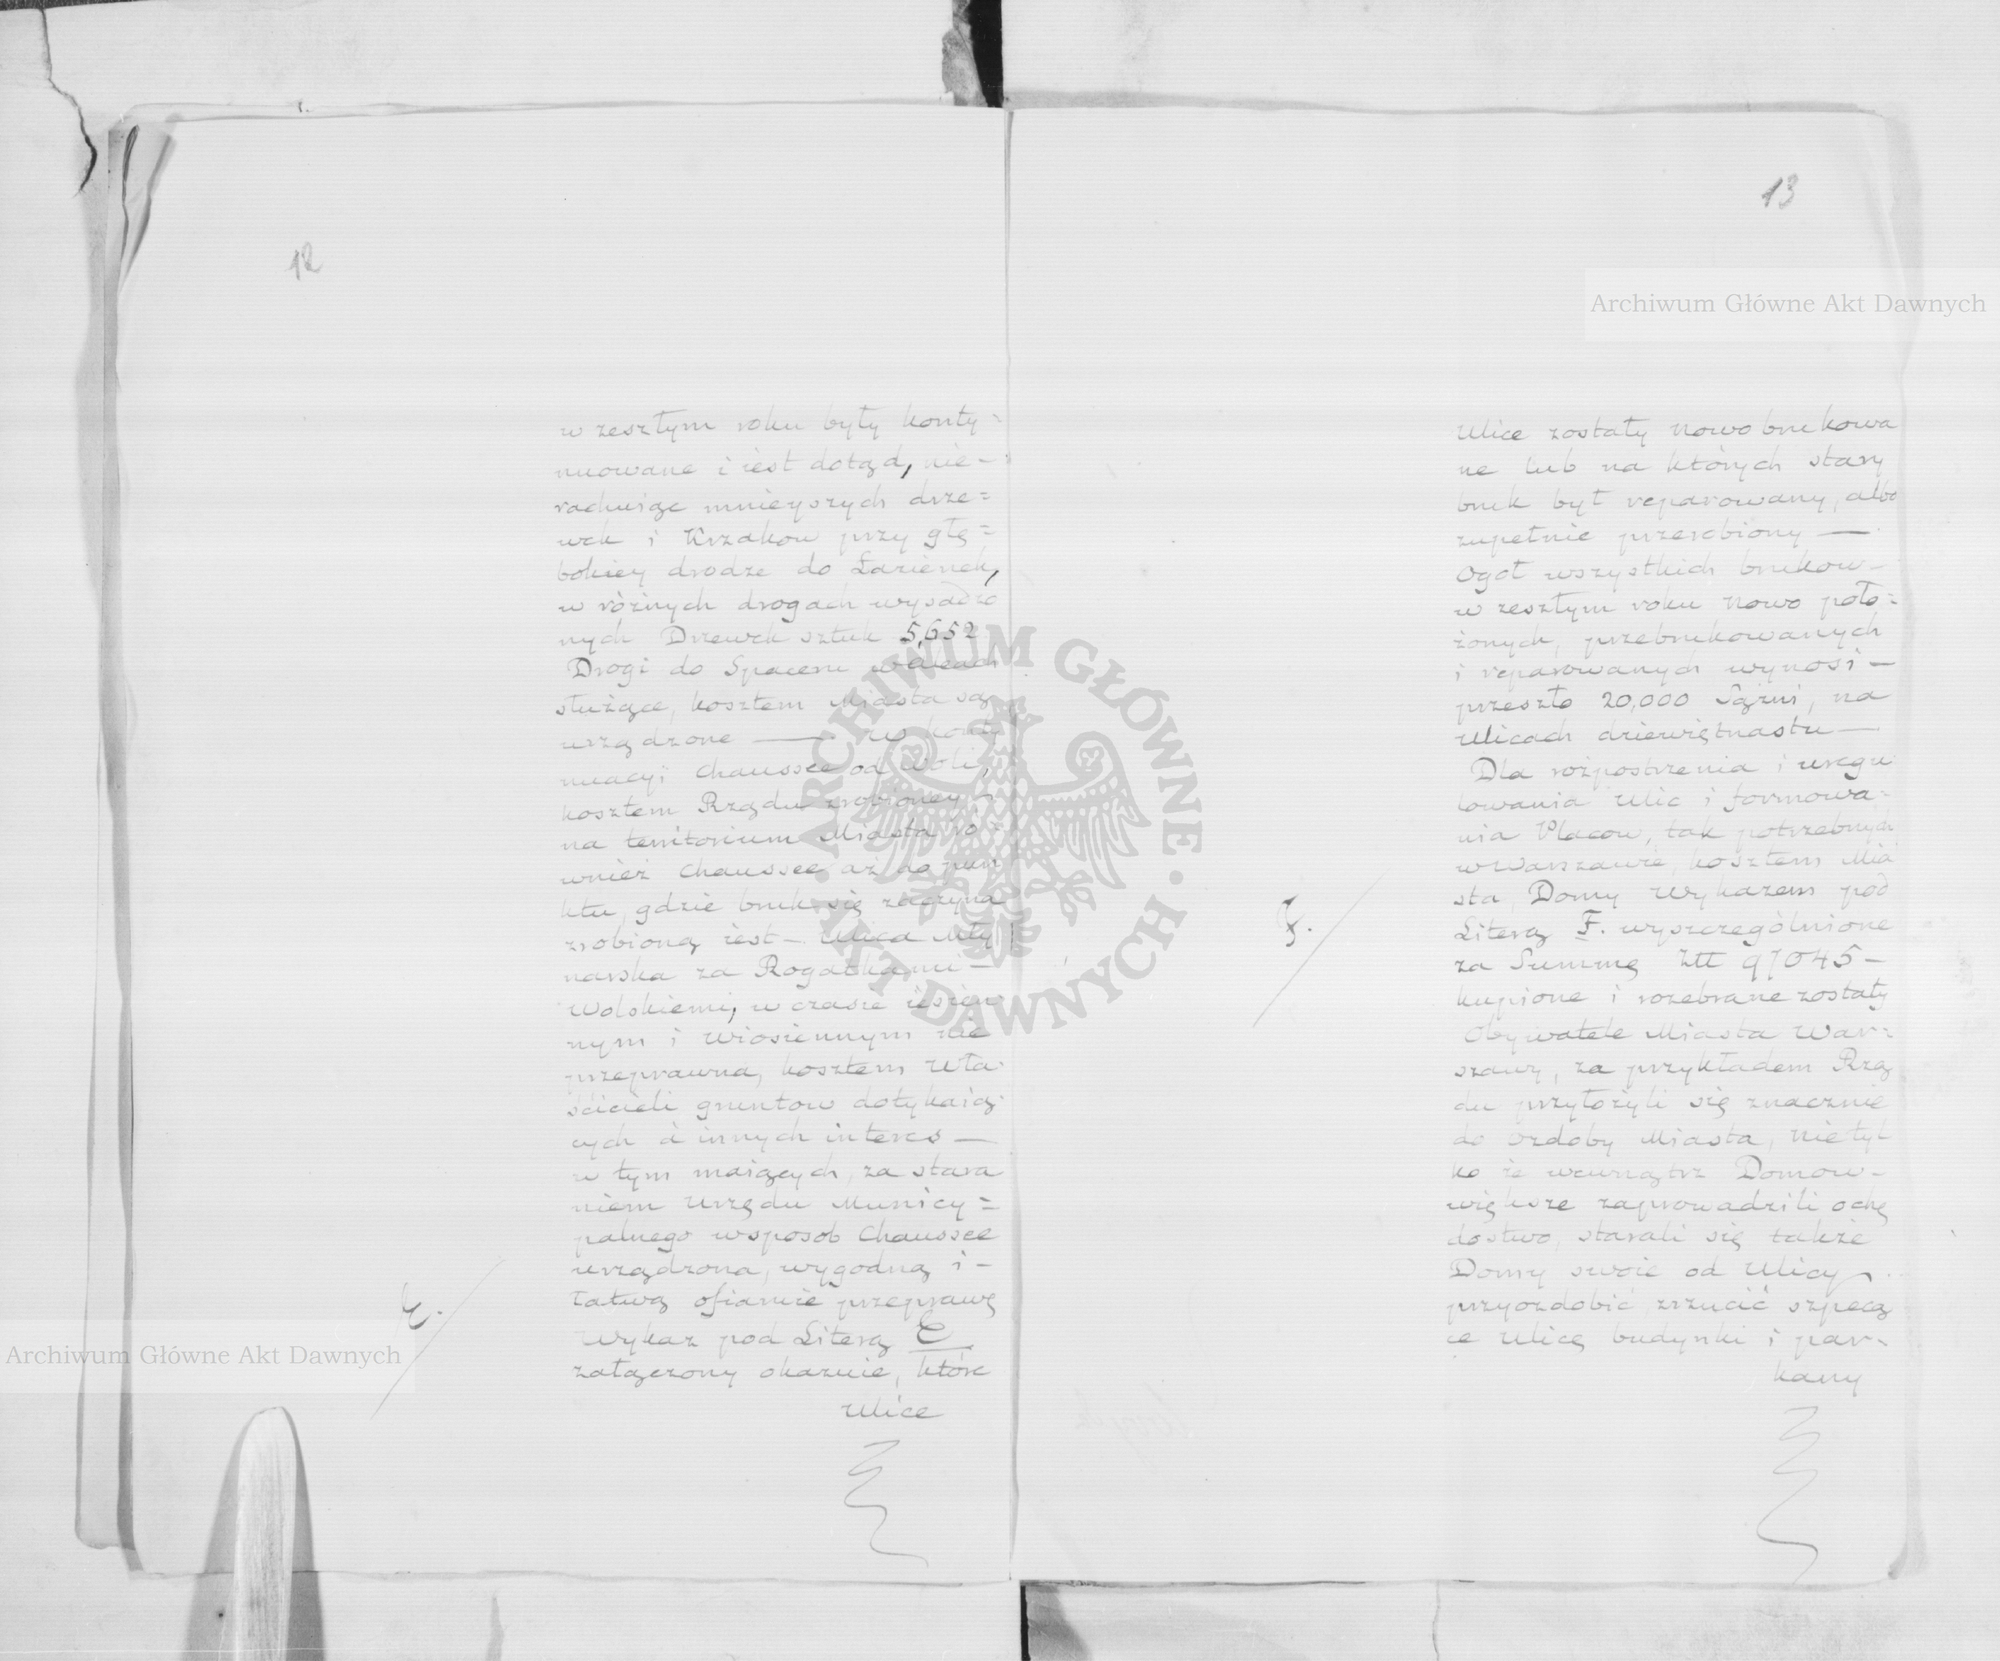 12
w zesztym roku były konty-
nuowane i iest dotąd, nie-
rachuiąc mnieyszych drze=
wek i Krzakow przy głę=
bokiey drodze do Łazienek,
w różnych drogach wysadzo
nych Drzewek sztuk 5,652
Drogi do Spaceru w
służące, kosztem Miasta są
urządzone — w konty
nuacyi Chaussee od Woli,
kosztem Rządu zrobioney,
na territorium Miasta ró-
wnież Chaussee aż do pun
ktu, gdzie bruk się zaczyna
zrobioną iest — Ulica Mły
narska za Rogatkami —
Wolskiemi, w czasie iesien-
nym i wiosiennym nie
przeprawna, kosztem wła-
ścicieli gruntow dotykaią-
cych à innych interes —
w tym maiących, za stara
niem Urzędu Municy=
palnego w sposob Chaussee
urządzona, wygodną i —
łatwą ofiaruie przeprawę
E.
Wykaz pod Literą E
załączony okazuie, które
Ulice
13
Ulice zostały nowo brukowa
ne lub na których stary
bruk był reparowany, albo
zupełnie przerobiony —
Ogół wszystkich brukow —
w zeszłym roku nowo poło=
żonych, przebrukowanych
i reparowanych wynosi —
przeszło 20,000 Sążni, na
Ulicach dziewiętnastu —
Dla rozpostrzenia i uregu
lowania Ulic i formowa-
nia Placow, tak potrzebnych
w Warszawie, kosztem Mia
sta, Domy wykazem pod
F.
Literą F. wyszczególnione
za Summę Ztt 97045 —
kupione i rozebrane zostały
Obywatele Miasta War-
szawy, za przykładem Rzą
du przyłożyli się znacznie
do Ozdoby Miasta, nie tyl
ko że wewnątrz Domow —
większe zaprowadzili ochę
dostwo, starali się także
Domy swoie od Ulicy
przyozdobić zrzucić szpecą
ce Ulicę budynki i par-
kany
Archiwum Główne Akt Dawnych
Archiwum Główne Akt Dawnych
ARCHIWUM GŁÓWNE
AKT DAWNYCH